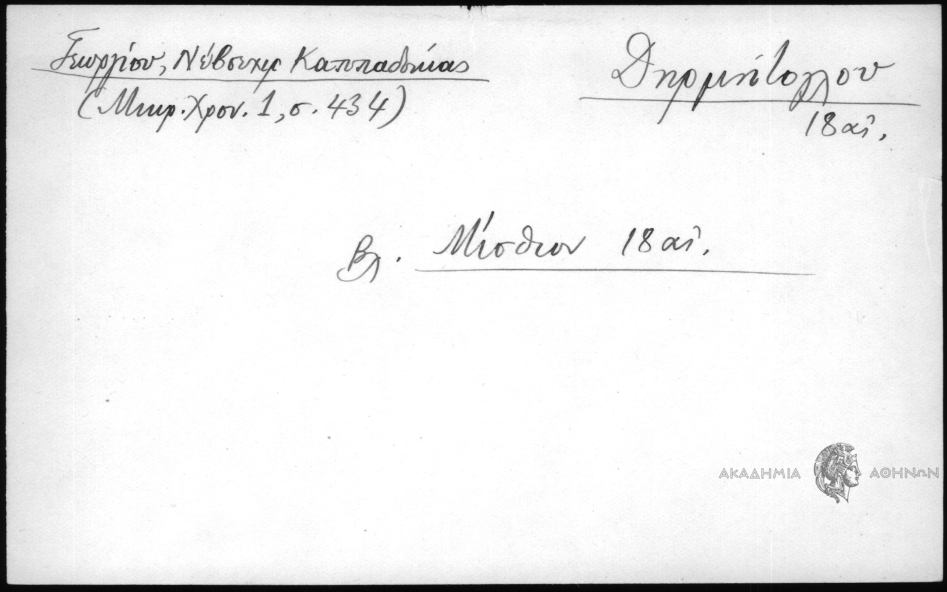 Γεωργίου, Νέβσεχιρ Καππαδοκίας
(Μικρ. Χρον. 1, σ. 434)
18 αἰ.
βλ. Μίσθιον 18 αἰ.
ΑΚΑΔΗΜΙΑ ΑΘΗΝΩΝ